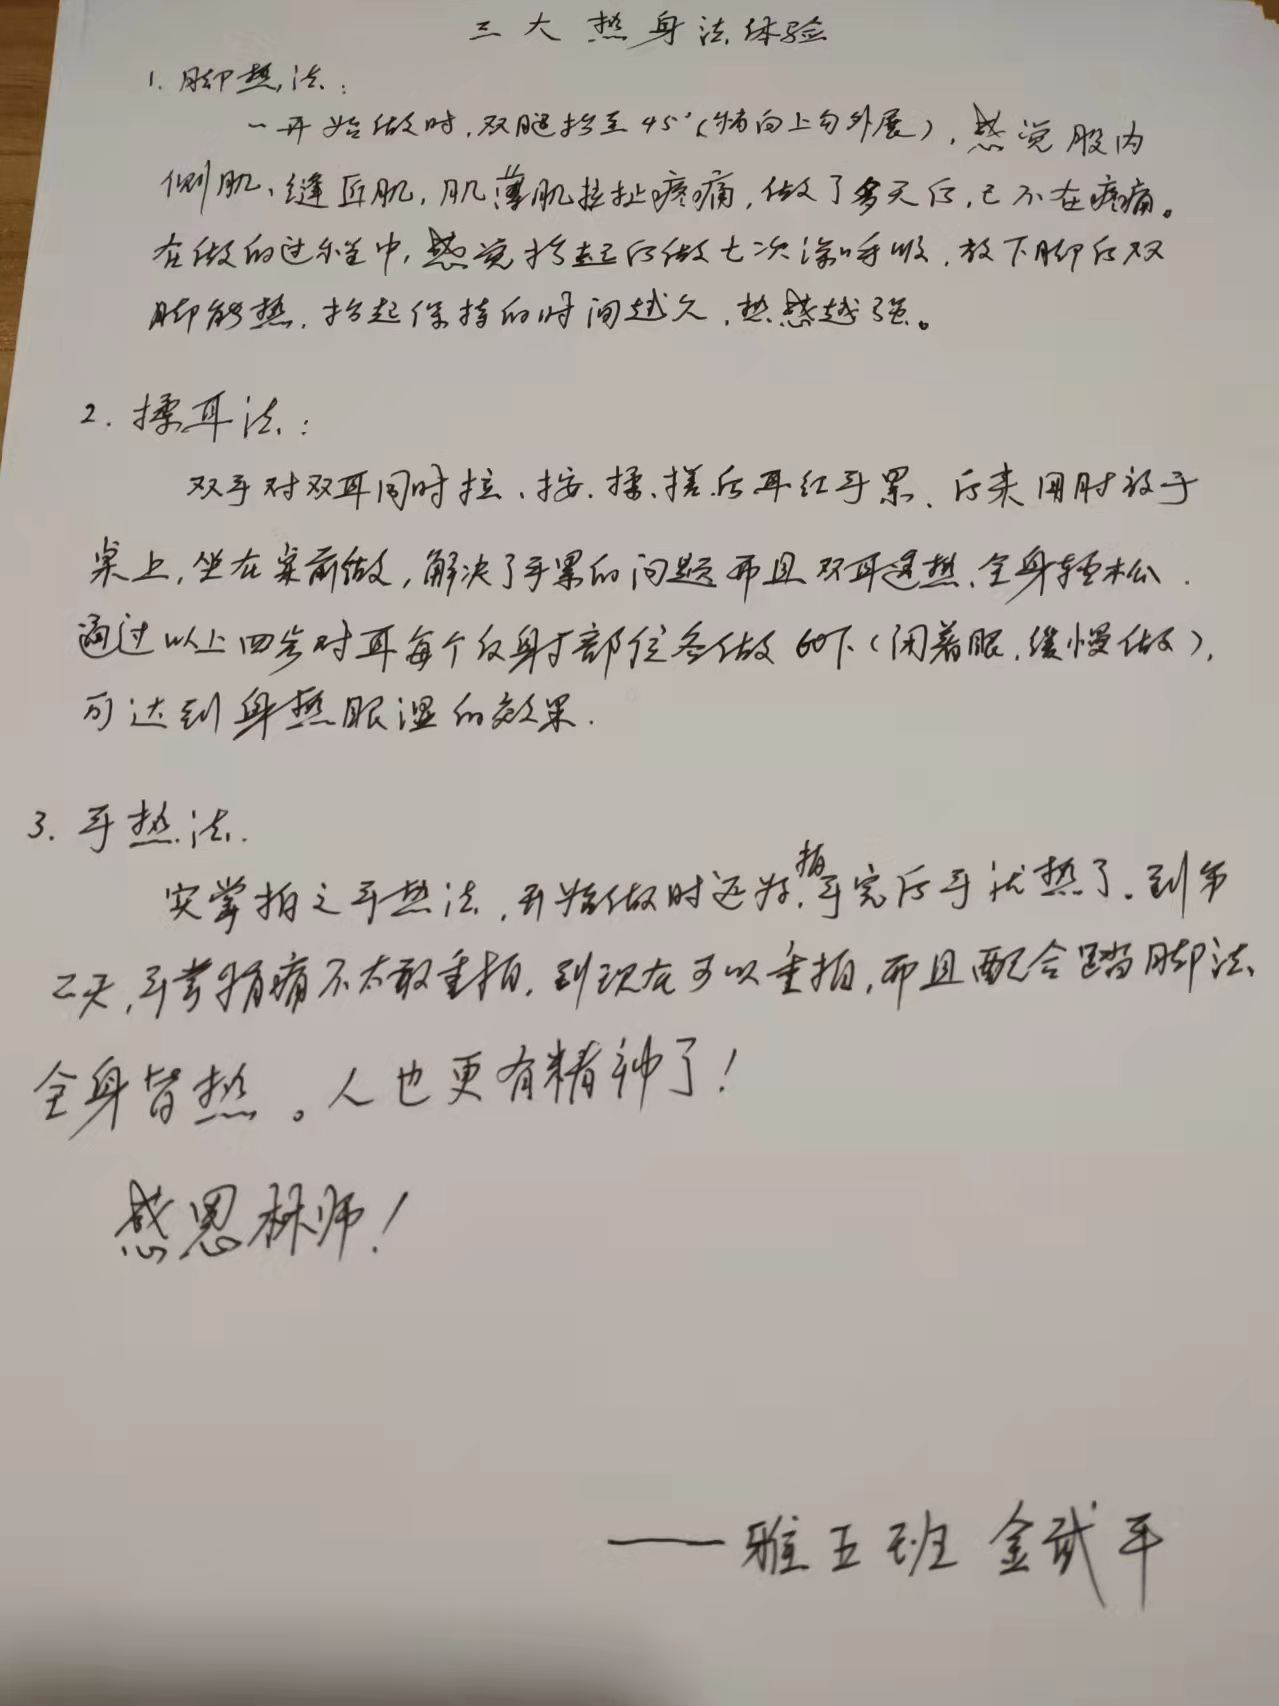 三大热身法体验
1. 脚热法:
一开始做时,双腿抬至45°(脚向上勾外展),感觉股内
侧肌、缝匠肌,肌薄肌拉扯疼痛,做了多天后,已不在疼痛。
在做的过程中,感觉抬起后做七次深呼吸,放下脚后双
脚能热,抬起保持的时间越久,热感越强。
2. 揉耳法:
双手对双耳同时拉、按、揉、搓后耳红手累、后来用肘放于
桌上,坐在桌前做,解决了手累的问题而且双耳透热、全身轻松.
通过以上四步对耳每个反射部位各做60下(闭着眼,缓慢做),
可达到身热眼湿的效果.
3. 手热法.
实掌拍之手热法,开始做时还好,拍手完后手就热了.到第
二天,手掌有痛不太敢重拍,到现在可以重拍,而且配合踏脚法、
全身皆热。人也更有精神了!
感恩林师!
——雅五班 金武平